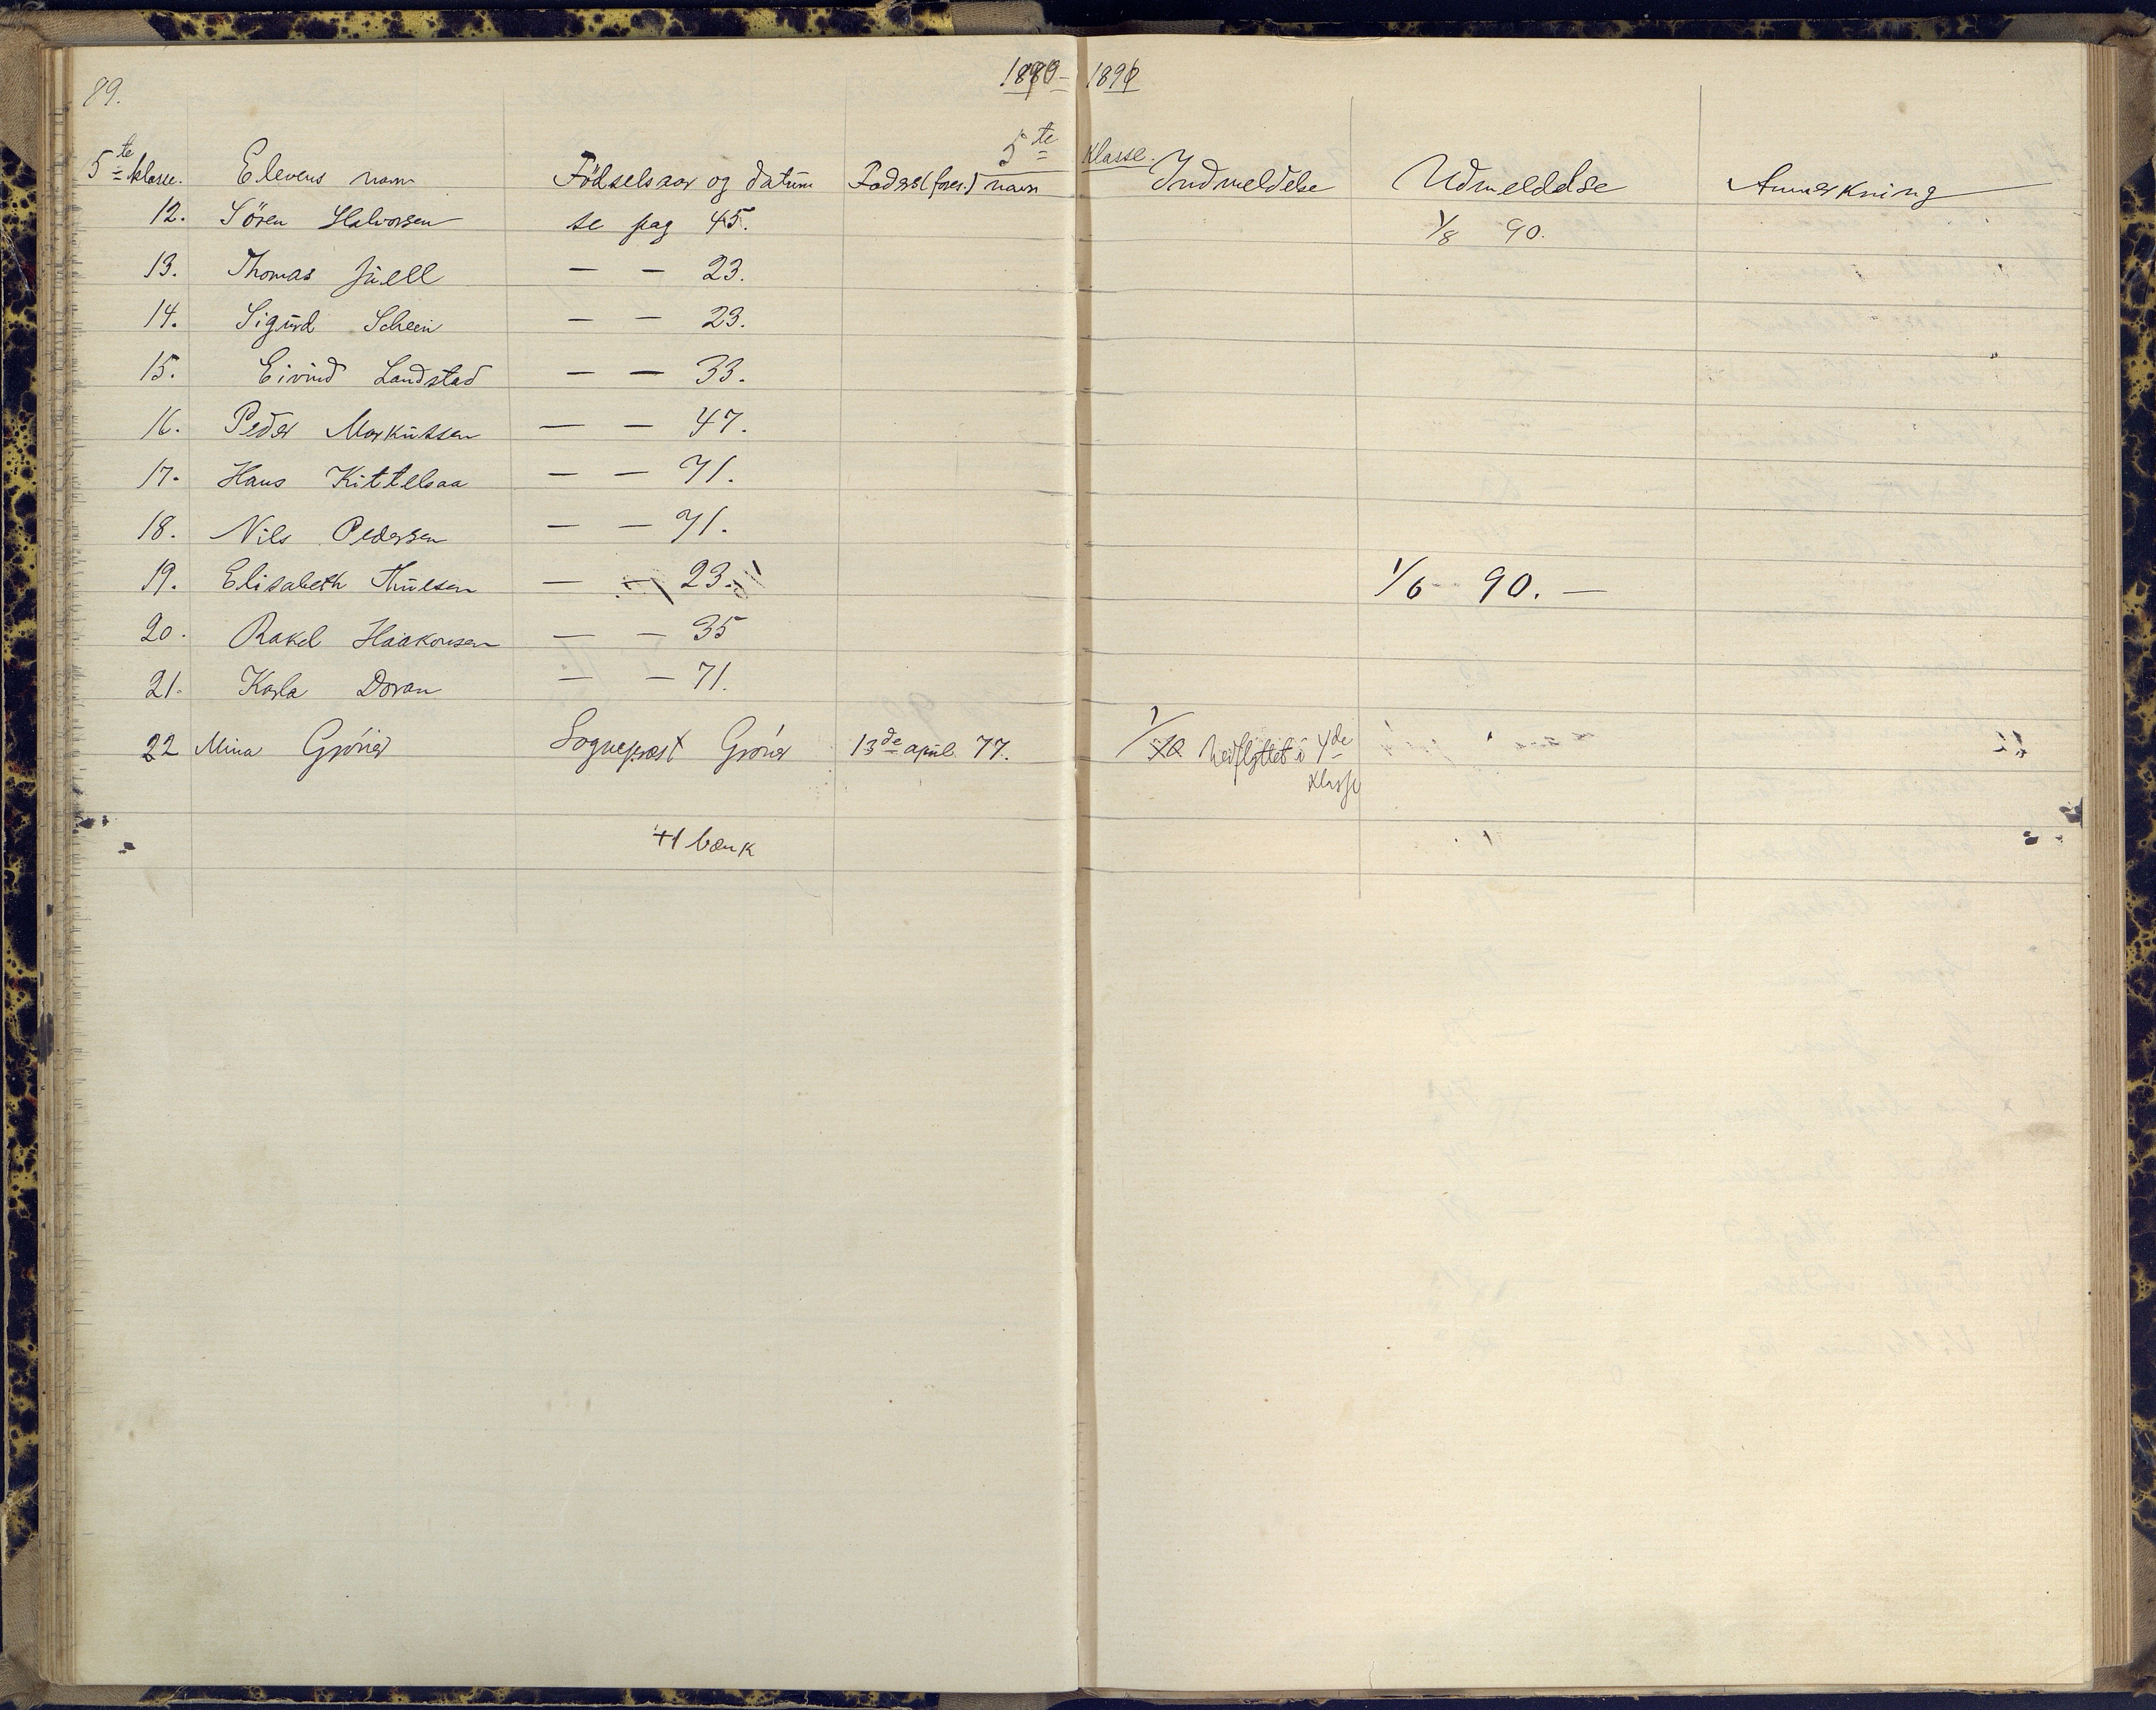 89.
1890- 1891
5te Klasse.
5te klasse. Elevens navn Födselsaar og datum Faders (fores.) navn Indmeldelse Udmeldelse Anmerkning
12. Sören Halvorsen se pag 45. 1/8 90.
13. Thomas Juell — — 23.
14. Sigurd Scheen — — 23.
15. Eivind Landstad — — 33.
16. Peder Markussen — — 47.
17. Hans Kittelsaa — — 71.
18. Nils Pedersen — — 71.
19. Elisabeth — — 23. 1/6 90. —
20. Rakel Haakonsen — — 35
21. Karla Dovan — — 71.
22 Mina Gröner Sogneprest Gröner 13de april 77. Nedflyttet i 4de
Klasse
+1 bænk